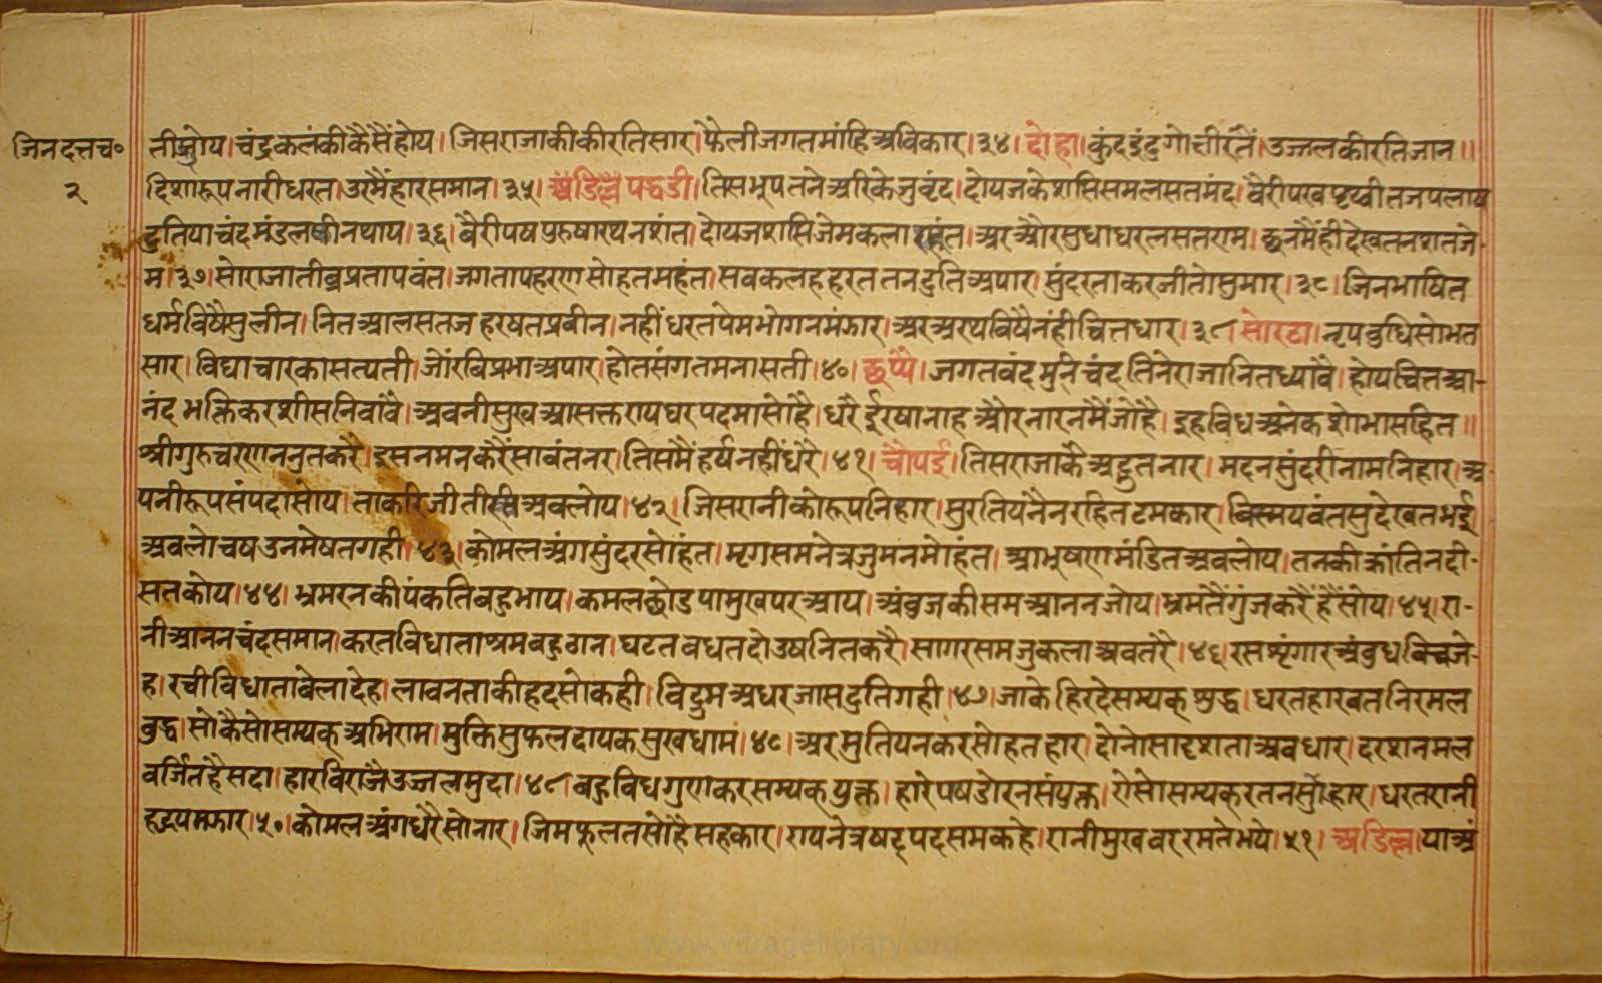 जिनदत्तच॰
२
तीसोय। चंद्रकलंकीकैसैंहोय। जिसराजाकीकीरतिसार। फैलीजगतमांहिअविकार। ३४। दोहा। कुंदइंदुगोत्तीरतैं। उज्जलकीरतिजान॥
दिशारूपनारीधरत। उरमैंहारसमान। ३५। अडिल्ल पद्धडी। तिसभूपतनेअरिकेजुवृंद। दोयजकेशसिसमलसतमंद। वैरीपखपृथ्वीतजपलाय
दुतियाचंदमंडलषीनथाय। ३६। वैरीपषपुरुषारथनशंत। दोयजशसिजेमकलारहंत। अरऔरसुधाधरलसतराम। छनमैंहीदेखतनशतजे-
म। ३७। सोराजातीव्रप्रतापवंत। जगतापहरणसोहतमहंत। सबकलहहरततनदुतिअपार। सुंदरताकरजीतोसुमार। ३८। जिनभाषित
धर्मविषैसुलीन। नितआलसतजहरषतप्रवीन। नहींधरतपेमभोगनमंझार। अरअरथविषैनंहीचितधार। ३९ सोरठा। नृपबुधिसोभत
सार। विद्याचारकासत्पती। जोंरविप्रभाअपार। होतसंगतमनासती। ४०। छप्पै। जगतवंदमुनिचंद तिनेराजानितध्यावै। होयचितआ-
नंद भक्तिकरशीसनिवांवै। अवनीसुखआसक्तरायघरपदमासोहै। धरै ईरषानाह औरनारनमैंजोहै। इहविधअनेकशोभासहित॥
श्रीगुरुचरणननुतकरै। इसनमनकरैंसावंतनर। तिसमैंहर्यनहींधरै। ४१। चौपई। तिसराजाकेअद्भुतनार। मदनसुंदरीनामनिहार। अ-
पनीरूपसंपदासोय। ताकरिजीतीस्त्रीअवलोय। ४२। जिसरानीकोरूपनिहार। सुरतियनैनरहितटमकार। विस्मयवंतसुदेखतभई
अवलोचषउनमेषतगही। ४३। कोमलअंगसुंदरसोहंत। मृगसमनेत्रजुमनमोहंत। आभूषणमंडितअवलोय। तनकीक्रांतिनदी-
सतकोय। ४४। भ्रमरनकीपंकतिबहुभाय। कमलछोडयामुखपरआय। अंबुजकीसमआननजोय। भ्रमतैंगुंजकरैंहैंसोय। ४५। रा-
नीआननचंदसमान। करतविधाताश्रमबहुठान। घटतवधतदोउषनितकरै। सागरसमजुकलाअवतरै। ४६। रसशृंगारअंबुधविचजे-
ह। रचीविधाताबेलादेह। लावनताकीहदसोकही। विद्रुमअधरजासदुतिगही। ४७। जाकेहिरदेसम्यकशुद्ध। धरतहारवतनिरमल
बुद्ध। सोकैसोसम्यकअभिराम। मुक्तिसुफलदायकसुखधाम। ४८। अरमुतियनकरसोहतहार। दोनोसादृशताअवधार। दरशनमल
वर्जितहैसदा। हारविराजैउज्जलमुदा। ४९। बहुविधगुणकरसम्यकयुक्त। हारेपषडोरनसंयुक्त। ऐसोसम्यकरतनसोहार। धरतरानी
हृदयमझार। ५०। कोमलअंगधरैसोनार। जिमफूलतसोहैसहकार। रायनेत्रषट्पदसमकहे। रानीमुखवररमतेभये। ५१। अडिल्ल। याअं